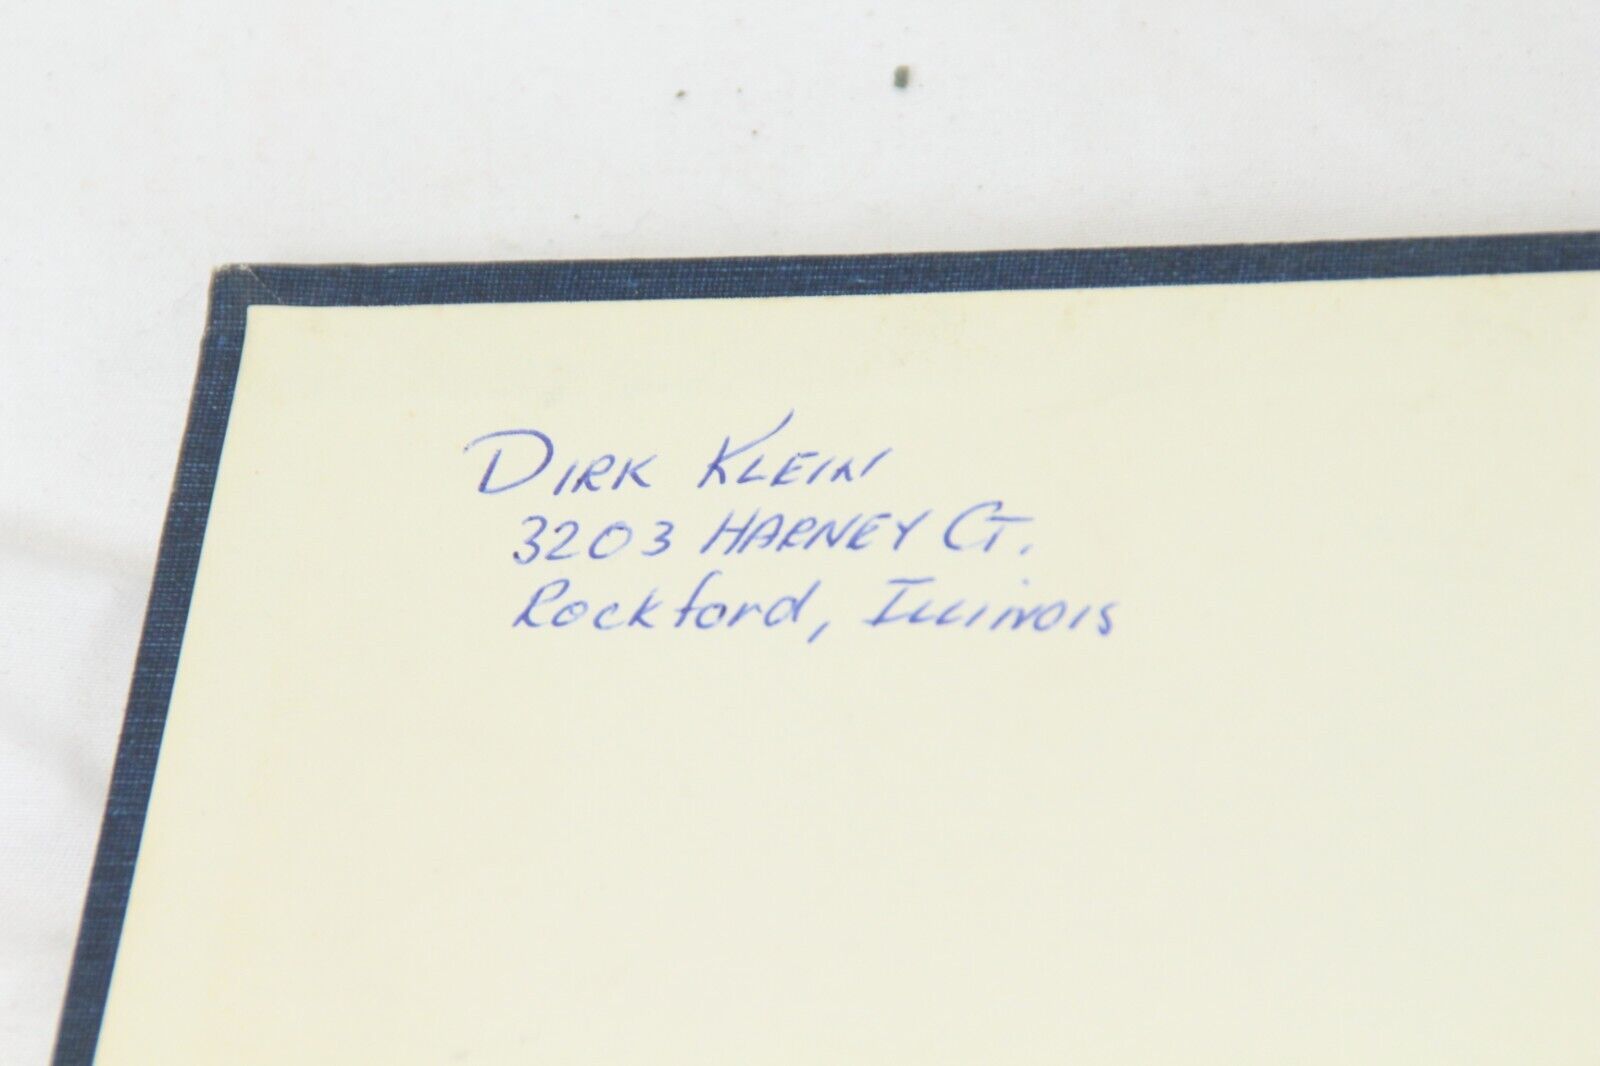 Dirk Klein
3203 Harney Ct.
Rockford, Illinois